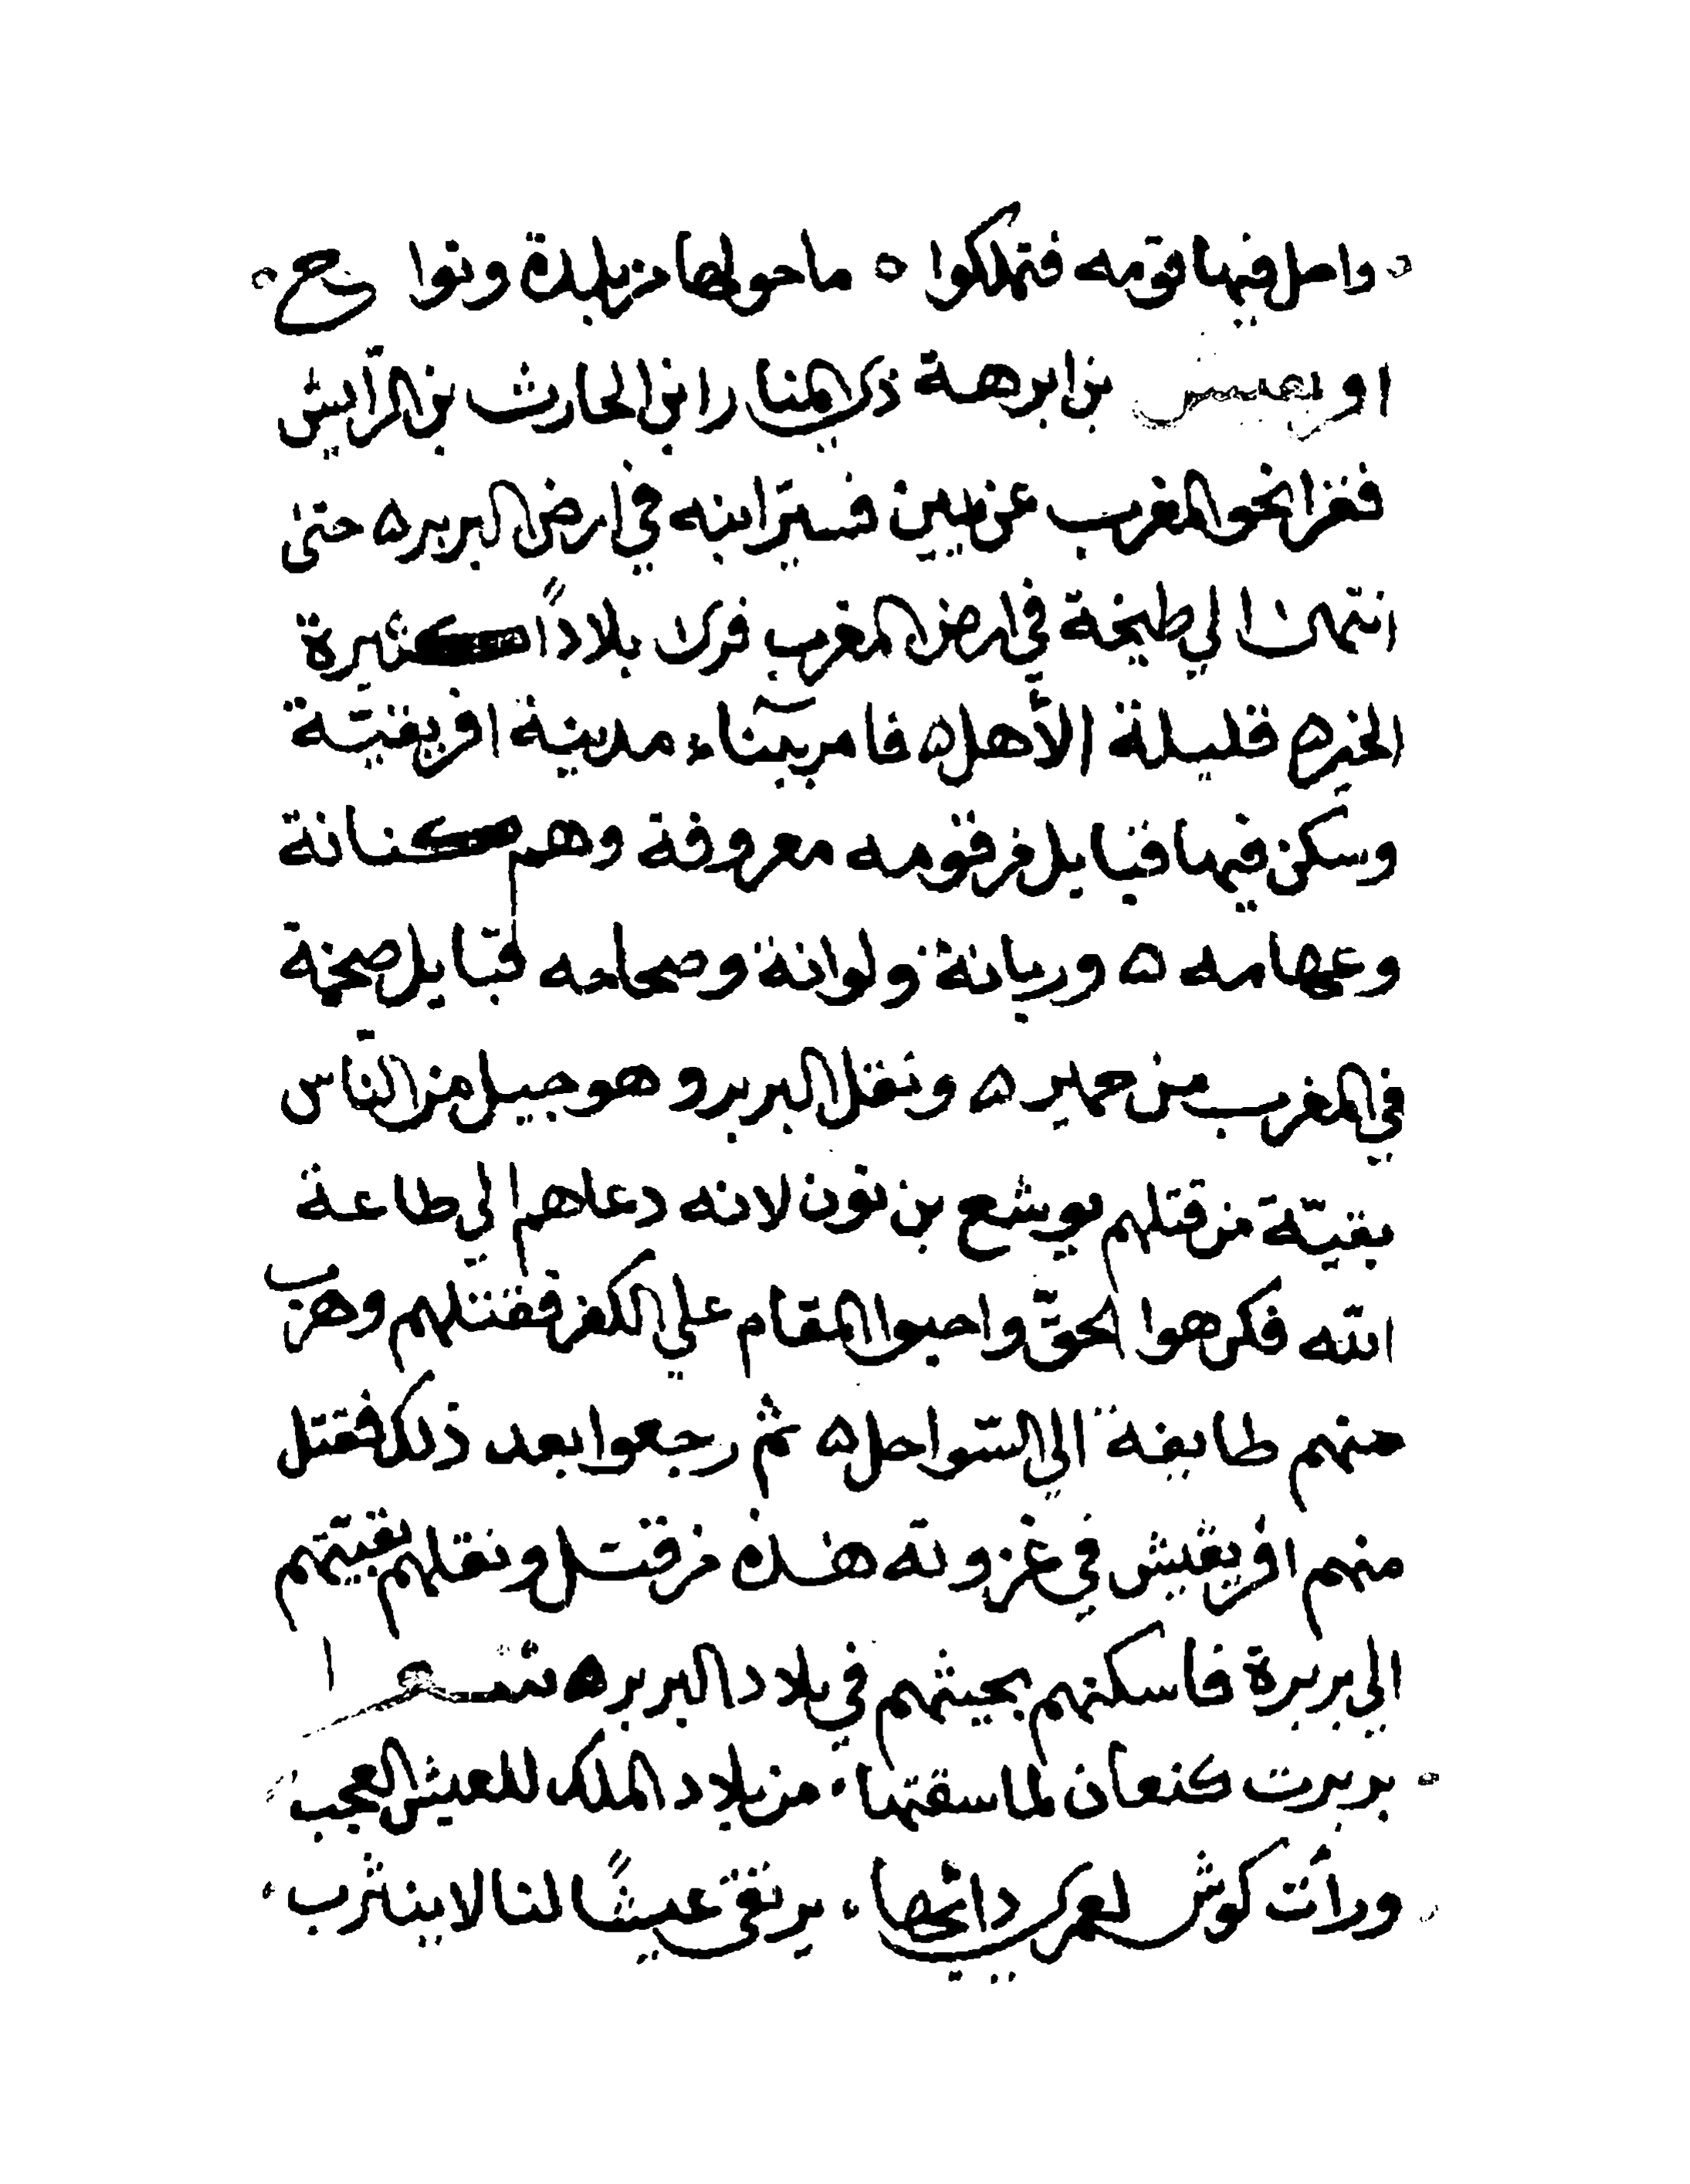 واصل فيها قومه فتملكوا ه ما حولها من بلدة ونوا حي
او بن ابرهة ذي المنار ابن الحارث بن الرآيش
فغزا نحو المغرب عن يمين فسيّر ابنه في ارض البربر ه حتى
انتهى الي طيخة في ارض المغرب فرى بلاداً كثيرة
الخير ه قليلة الأهل ه فامر ببنآء مدينة افريقيّة
وسكن فيها قبايل من قومه معروفة وهم كنانة
وعهامه ه وريانة ولوانة وصحاحه قبايل ضخمة
في المغرب من حمير ه ونقل البربر وهو جيل من النّاس
بقيّة من قتلهم يوشع بن نون لانه دعاهم الي طاعة
الله فكرهوا الحقّ واحبوا المقام علي الكفر فقتلهم وهرب
منهم طايفة الي السّواحل ه ثم رجعوا بعد ذلك فقتل
منهم افريقيش في غزوته هذه من قتل ونقل بقيتهم
الي بربرة فاسكنهم بحيثهم في بلاد البربر ه شعرا
بربرت كنعان لما سقتها ۰ من بلاد الملك للعيش العجب
ورأت كوش لعمري دائها ۰ يرتقي عيشًا لنا لا ينثرب